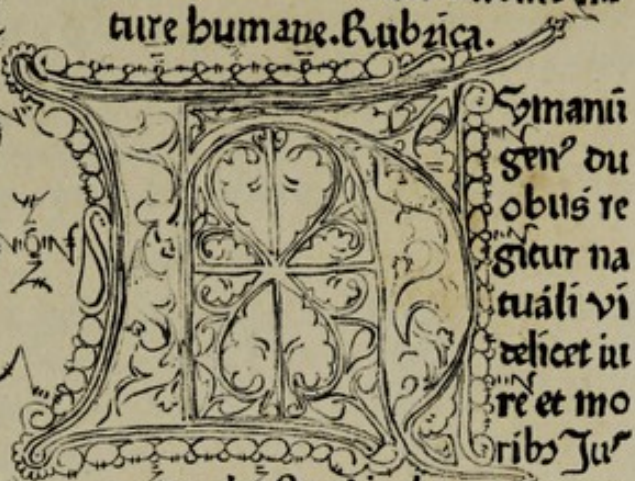 ture humane. Rubrica.
H
ymanū
genꝰ du
obus re
gitur na
tuáli vi
delicet iu
re et mo
ribꝫ Juſ